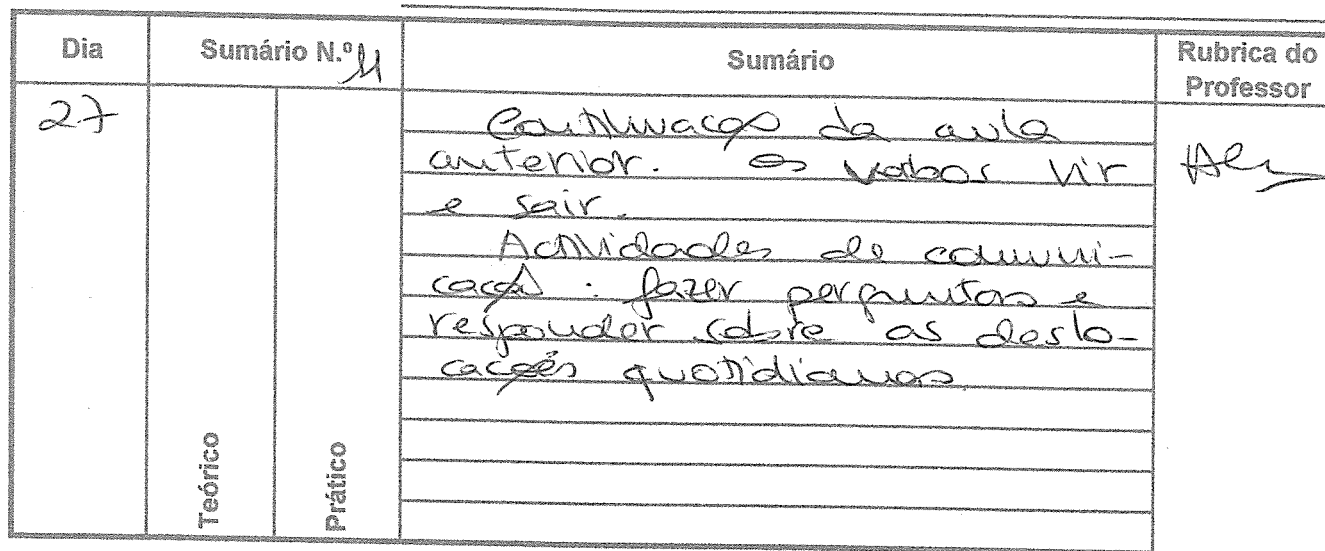 Dia Sumário N.º 11 Sumário Rubrica do Professor
27
Continuação da aula
anterior. Os verbos vir
e sair.
Actividades de comuni-
cação: fazer perguntas e
responder sobre as deslo-
cações quotidianas
Teórico
Prático